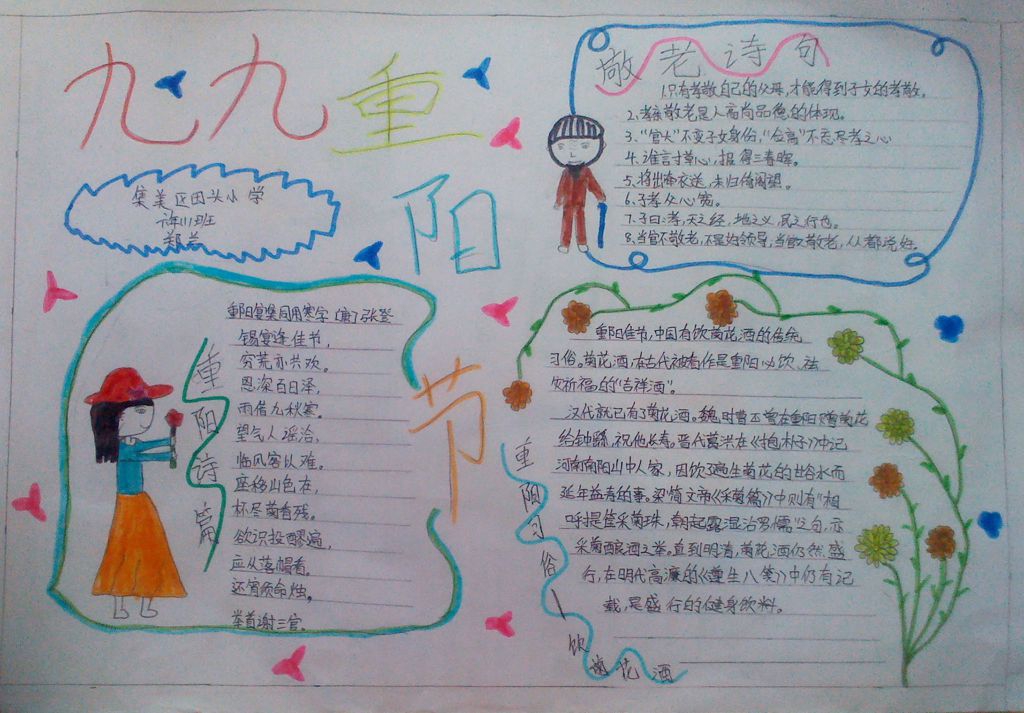 九九重阳节
集美区田头小学
敬老诗句
1.只有孝敬自己的父母,才能得到子女的孝敬。
2.孝亲敬老是人高尚品德的体现。
3.“官大”不变子女身份,“位高”不忘尽孝之心
4.谁言寸草心,报得三春晖。
5.将出牵衣送,未归倚阁望。
6.子孝父心宽。
7.子曰:孝,天之经,地之义,民之行也。
8.当官不敬老,不是好领导,当敬敬老,人都说好。
重阳诗篇
重阳宴集同用寒字 (唐)张登
锡宴逢佳节,
穷荒亦共欢。
恩深百日泽,
雨借九秋寒。
望气人谣洽,
临风客以难。
座移山色在,
杯尽菊香残。
欲识投醪遍,
应从落帽看。
还宵须命烛,
举首谢三官。
重阳习俗—饮菊花酒
重阳佳节,中国有饮菊花酒的传统
习俗。菊花酒,在古代被看作是重阳必饮、祛
灾祈福的“吉祥酒”。
汉代就已有了菊花酒。魏时曹丕曾在重阳赠菊花
给钟繇,祝他长寿。晋代葛洪在《抱朴子》中记
河南南阳山中人家,因饮了遍生菊花的甘谷水而
延年益寿的事。梁简文帝《采菊篇》中则有“相
呼提筐采菊珠,朝起露湿沾罗襦”之句,亦
采菊酿酒之举。直到明清,菊花酒仍然盛
行,在明代高濂的《遵生八笺》中仍有记
载,是盛行的健身饮料。